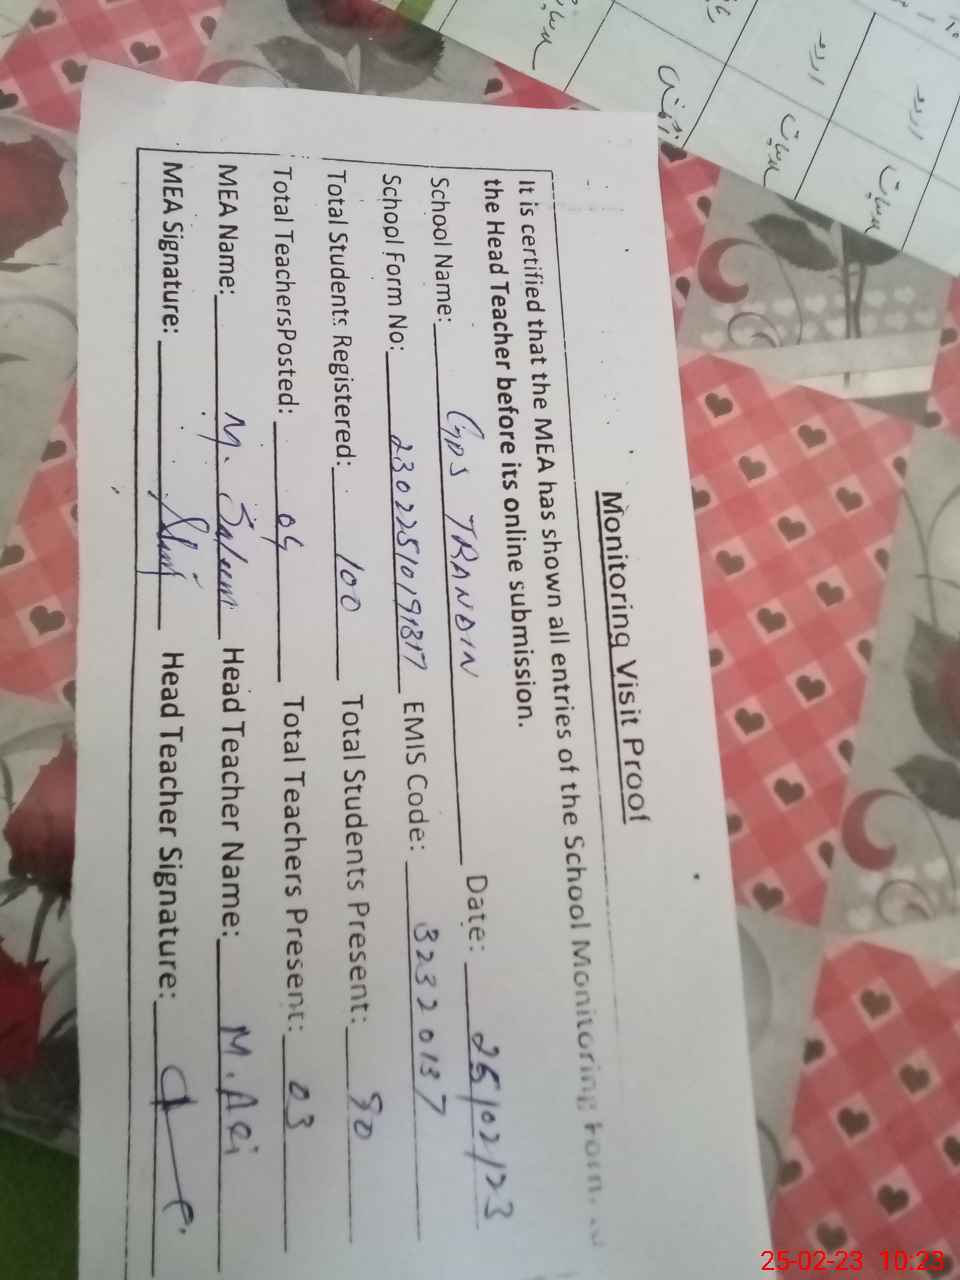 Monitoring Visit Proof
It is certified that the MEA has shown all entries of the School Monitoring Form, to
the Head Teacher before its online submission.
School Name: GPS TRANDIN Date: 25/02/23
School Form No: 2302251019317 EMIS Code: 32320137
Total Students Registered: 100 Total Students Present: 90
Total TeachersPosted: 04 Total Teachers Present: 03
MEA Name: M. Saleem Head Teacher Name: M. Ali
MEA Signature: Head Teacher Signature:
اردو
اردو
25-02-23 10:23